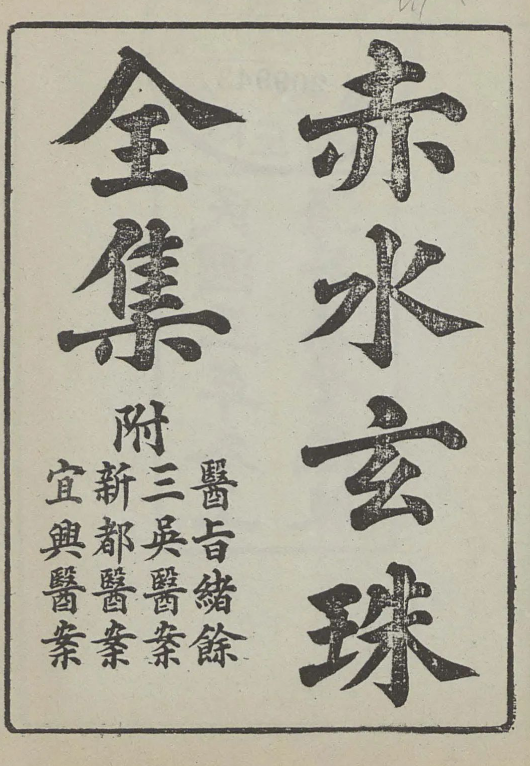 赤水玄珠
全集
附
醫旨緒餘
三吳醫案
新都醫案
宜興醫案